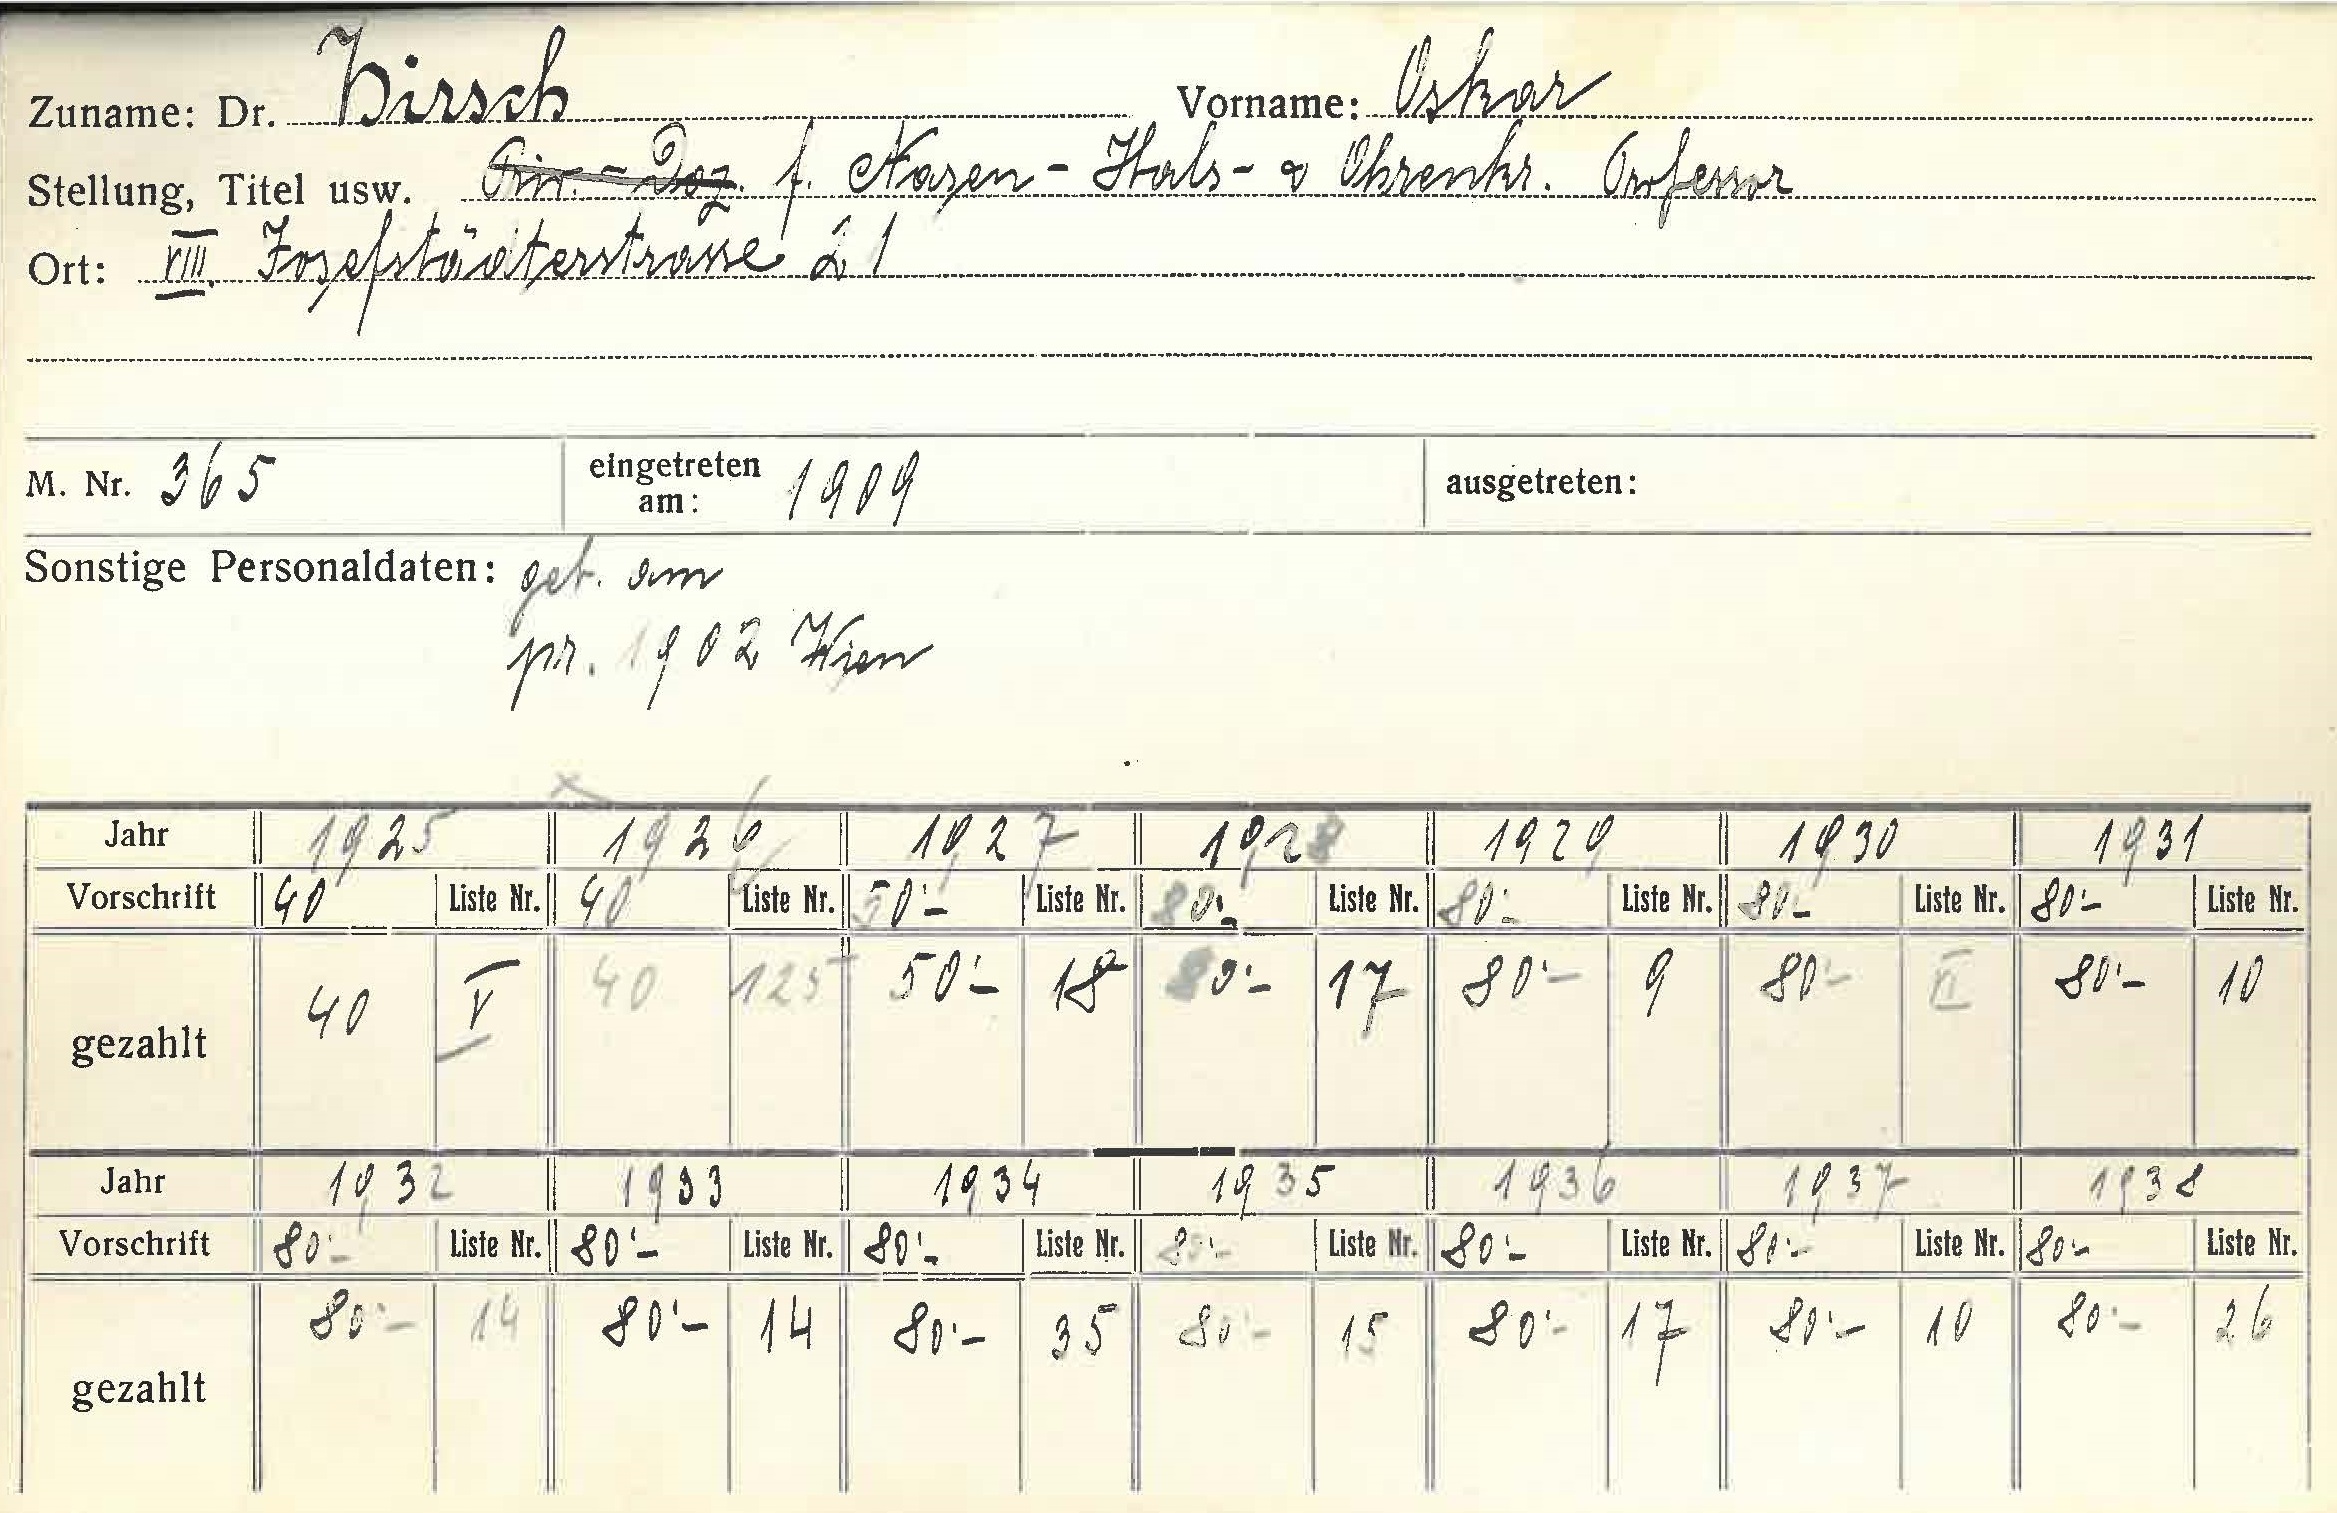 Zuname: Dr. Hirsch Vorname: Oskar
Stellung, Titel usw. Priv.-Doz. f. Nasen- Hals- & Ohrenkr. Professor
Ort: VIII. Josefstädterstrasse 21
M. Nr. 365 eingetreten am: 1909 ausgetreten:
Sonstige Personaldaten: geb. am
pr. 1902 Wien
Jahr 1925 1926 1927 1928 1929 1930 1931
Vorschrift 40 Liste Nr. 40 Liste Nr. 50'- Liste Nr. 80'- Liste Nr. 80'- Liste Nr. 80'- Liste Nr. 80'- Liste Nr.
gezahlt 40 V 40 125 50'- 18 80'- 17 80'- 9 80'- 80'- 10
Jahr 1932 1933 1934 1935 1936 1937 1938
Vorschrift 80'- Liste Nr. 80'- Liste Nr. 80'- Liste Nr. 80'- Liste Nr. 80'- Liste Nr. 80'- Liste Nr. 80'- Liste Nr.
gezahlt 80'- 14 80'- 14 80'- 35 80'- 15 80'- 17 80'- 10 80'- 26